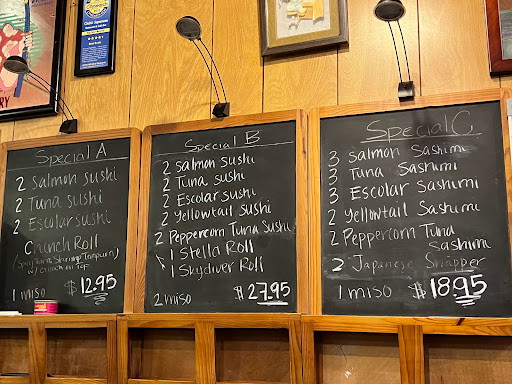 Special A
2 Salmon Sushi
2 Tuna Sushi
2 Escolar Sushi
Crunch Roll
(Spicy Tuna, Shrimp Tempura)
w/ crunch on top
1 miso $12.95
Special B
2 Salmon Sushi
2 Tuna Sushi
2 Escolar Sushi
2 Yellowtail Sushi
2 Peppercorn Tuna Sushi
1 Stella Roll
1 Skydiver Roll
2 miso $27.95
Special C
3 Salmon Sashimi
3 Tuna Sashimi
3 Escolar Sashimi
2 Yellowtail Sashimi
2 Peppercorn Tuna
Sashimi
2 Japanese Snapper
1 miso $18.95
RY